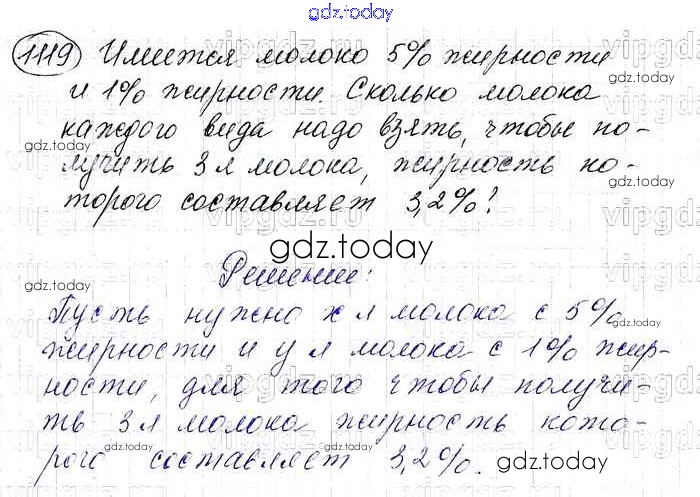 gdz.today
1119 Имеется молоко 5% жирности
и 1% жирности. Сколько молока
каждого вида надо взять, чтобы по-
лучить 3 л молока, жирность ко-
торого составляет 3,2%?
gdz.today
Решение:
Пусть нужно x л молока с 5%
жирности и y л молока с 1% жир-
ности, для того чтобы получи-
ть 3 л молока жирность кото-
рого составляет 3,2%.
gdz.today